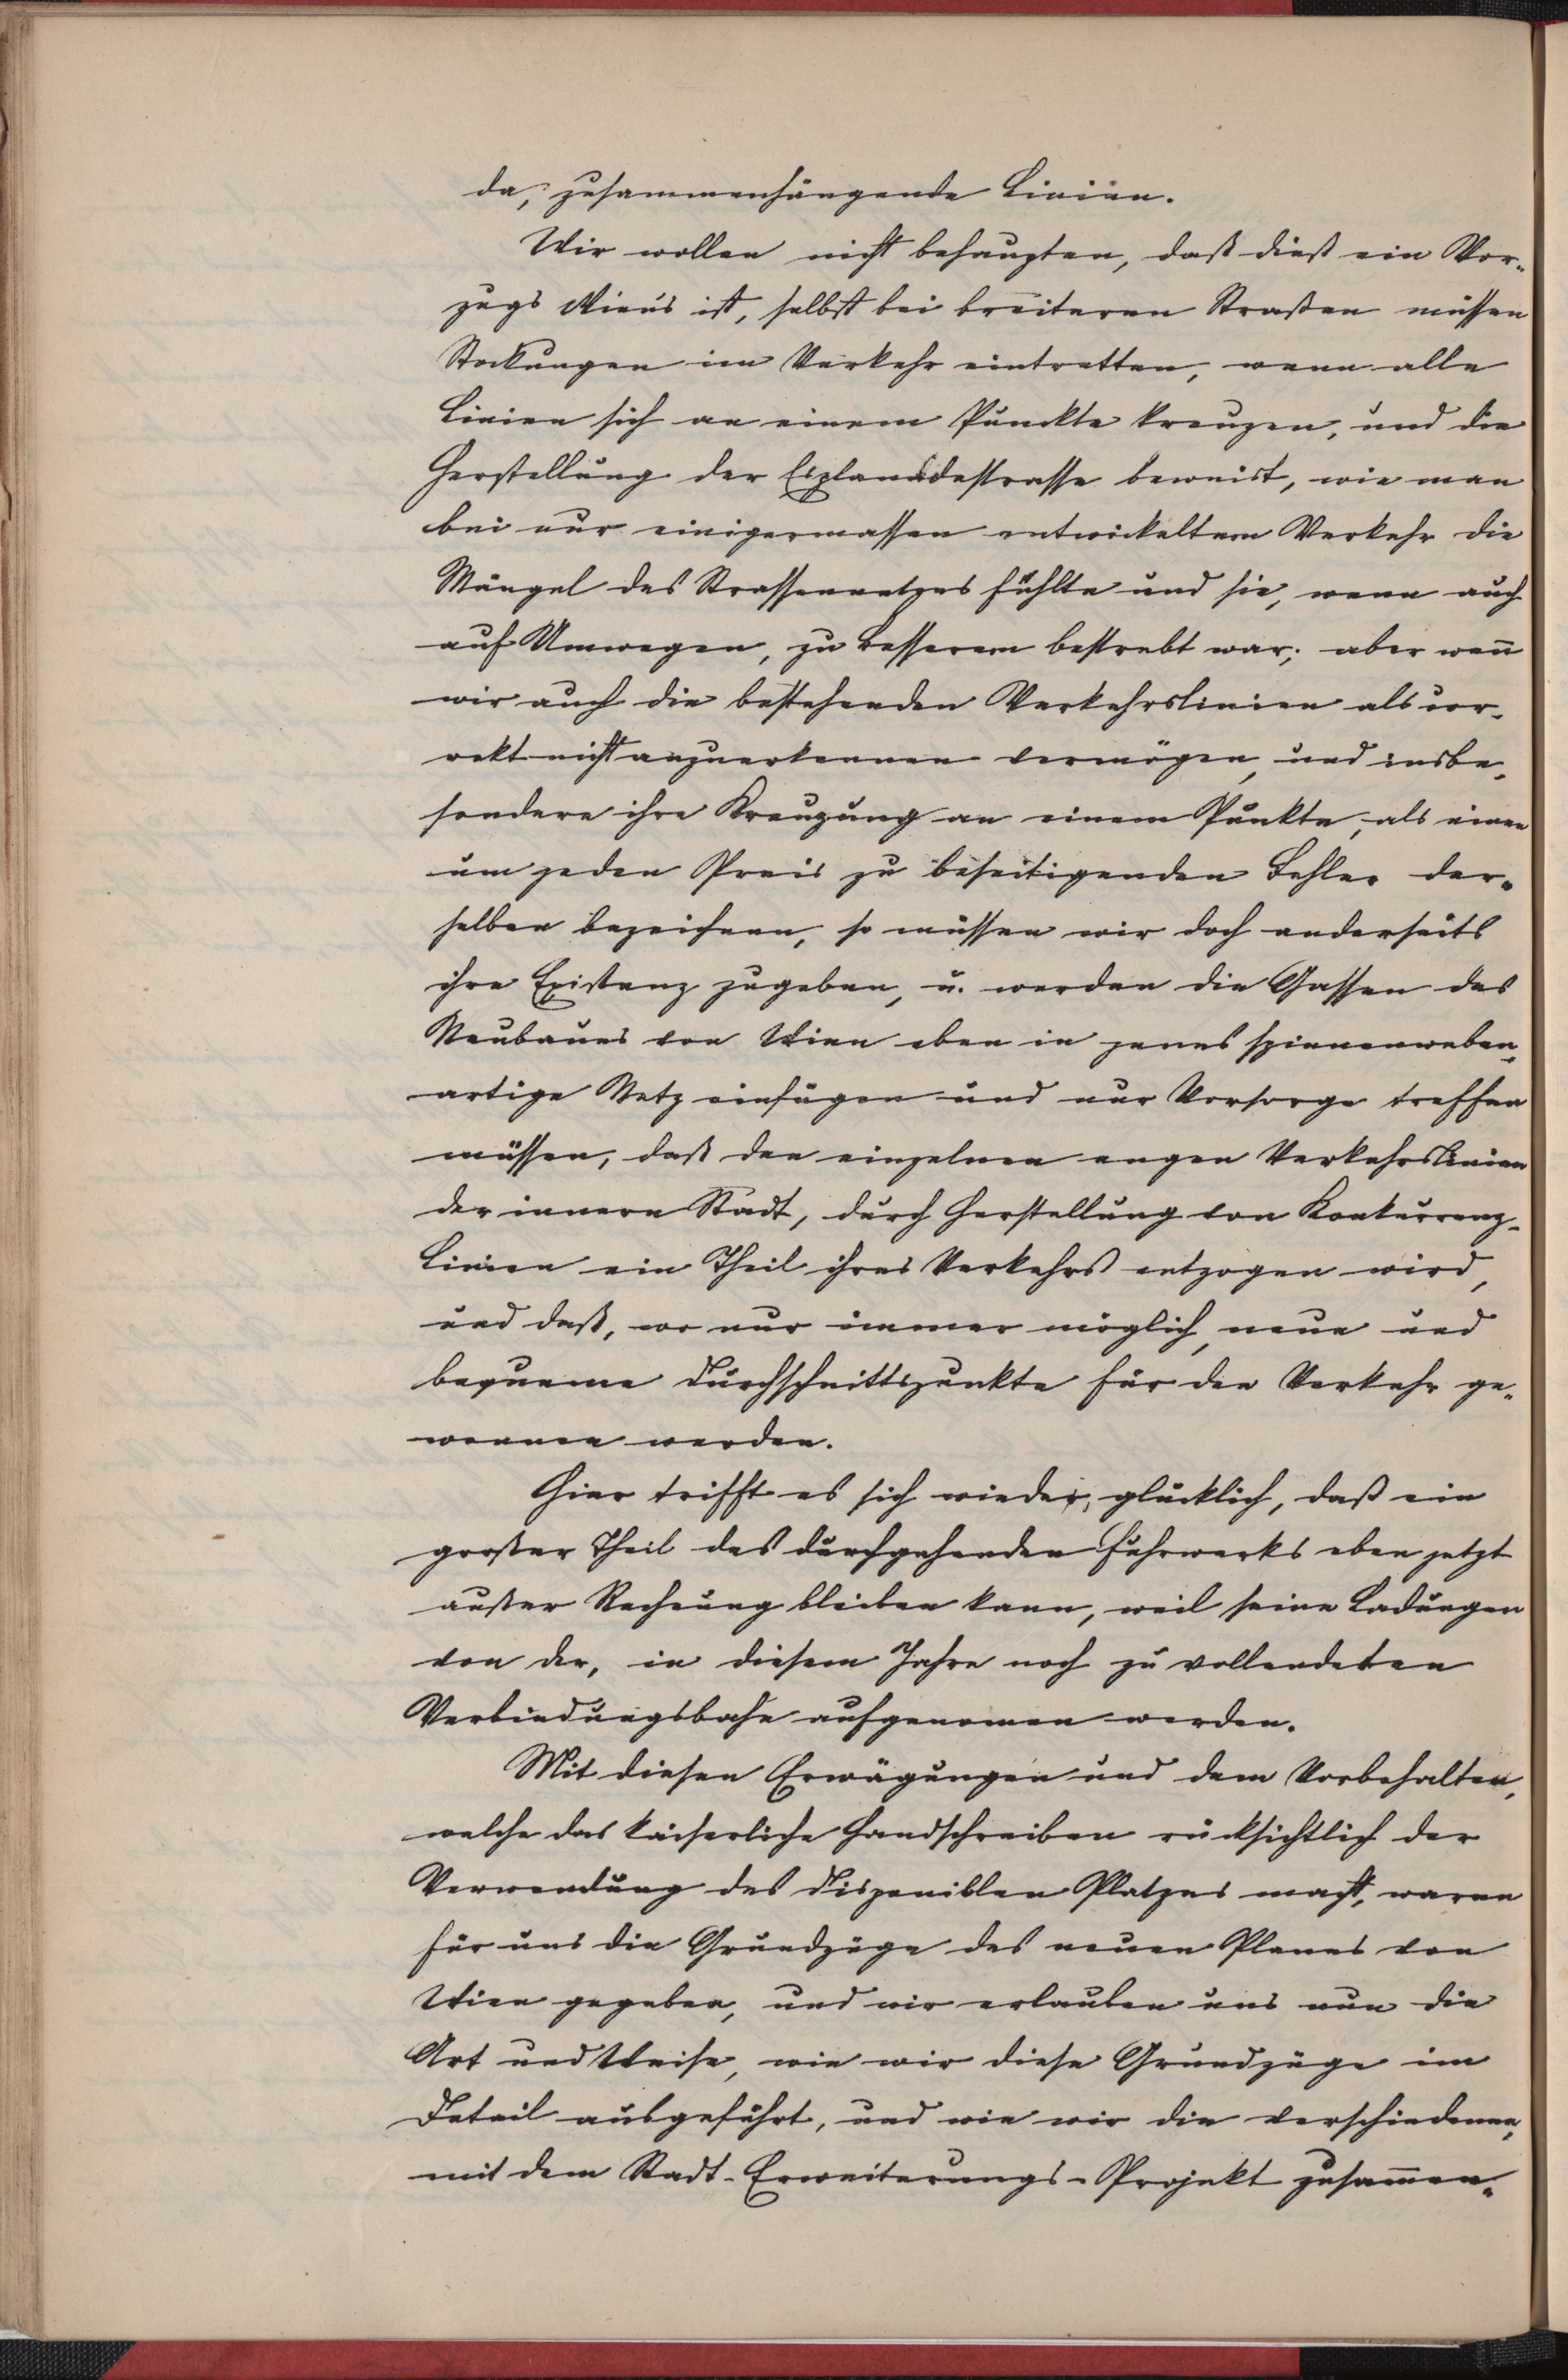 da, zusammenhängende Linien.
Wir wollen nicht behaupten, daß dieß ein Vor-
zugs Wien's ist, selbst bei breiteren Straßen müssen
Stockungen im Verkehr eintretten, wenn alle
Linien sich an einem Punckte kreuzen, und die
Herstellung der Esplanadestrasse beweist, wie man
bei nur einigermassen entwickeltem Verkehr die
Mängel des Strassennetzes fühlte und sie, wenn auch
auf Umwegen, zu bessern bestrebt war; aber wen̄
wir auch die bestehenden Verkehrslinien als cor-
rekt nicht anzuerkennen vermögen, und insbe-
sondere ihre Kreuzung an einem Punkte, als einen
um jeden Preis zu beseitigenden Fehler der-
selben bezeichnen, so müssen wir doch anderseits
ihre Existenz zugeben, u. werden die Gassen des
Neubaues von Wien eben in jenes spinnenweben-
artige Netz einfügen und nur Vorsorge treffen
müssen, daß den einzelnen engen Verkehrslinien
der innern Stadt, durch Herstellung von Konkurrenz-
Linien ein Theil ihres Verkehrs entzogen wird,
und daß, wo nur immer möglich, neue und
bequeme Durchschnittspunkte für den Verkehr ge-
wonnen werden.
Hier trifft es sich wieder, glücklich, daß ein
großer Theil des durchgehenden Fuhrwerks eben jetzt
außer Rechnung bleiben kann, weil seine Ladungen
von der, in diesem Jahre noch zu vollendeten
Verbindungsbahn aufgenomen werden.
Mit diesen Erwägungen und dem Vorbehalten,
welche das kaiserliche Handschreiben rücksichtlich der
Verwendung des disponiblen Platzes macht, waren
für uns die Grundzüge des neuen Planes von
Wien gegeben, und wir erlauben uns nun die
Art und Weise, wie wir diese Grundzüge im
Detail ausgeführt, und wie wir die verschiedenen,
mit dem Stadt-Erweiterungs-Projekt zusam̄en-